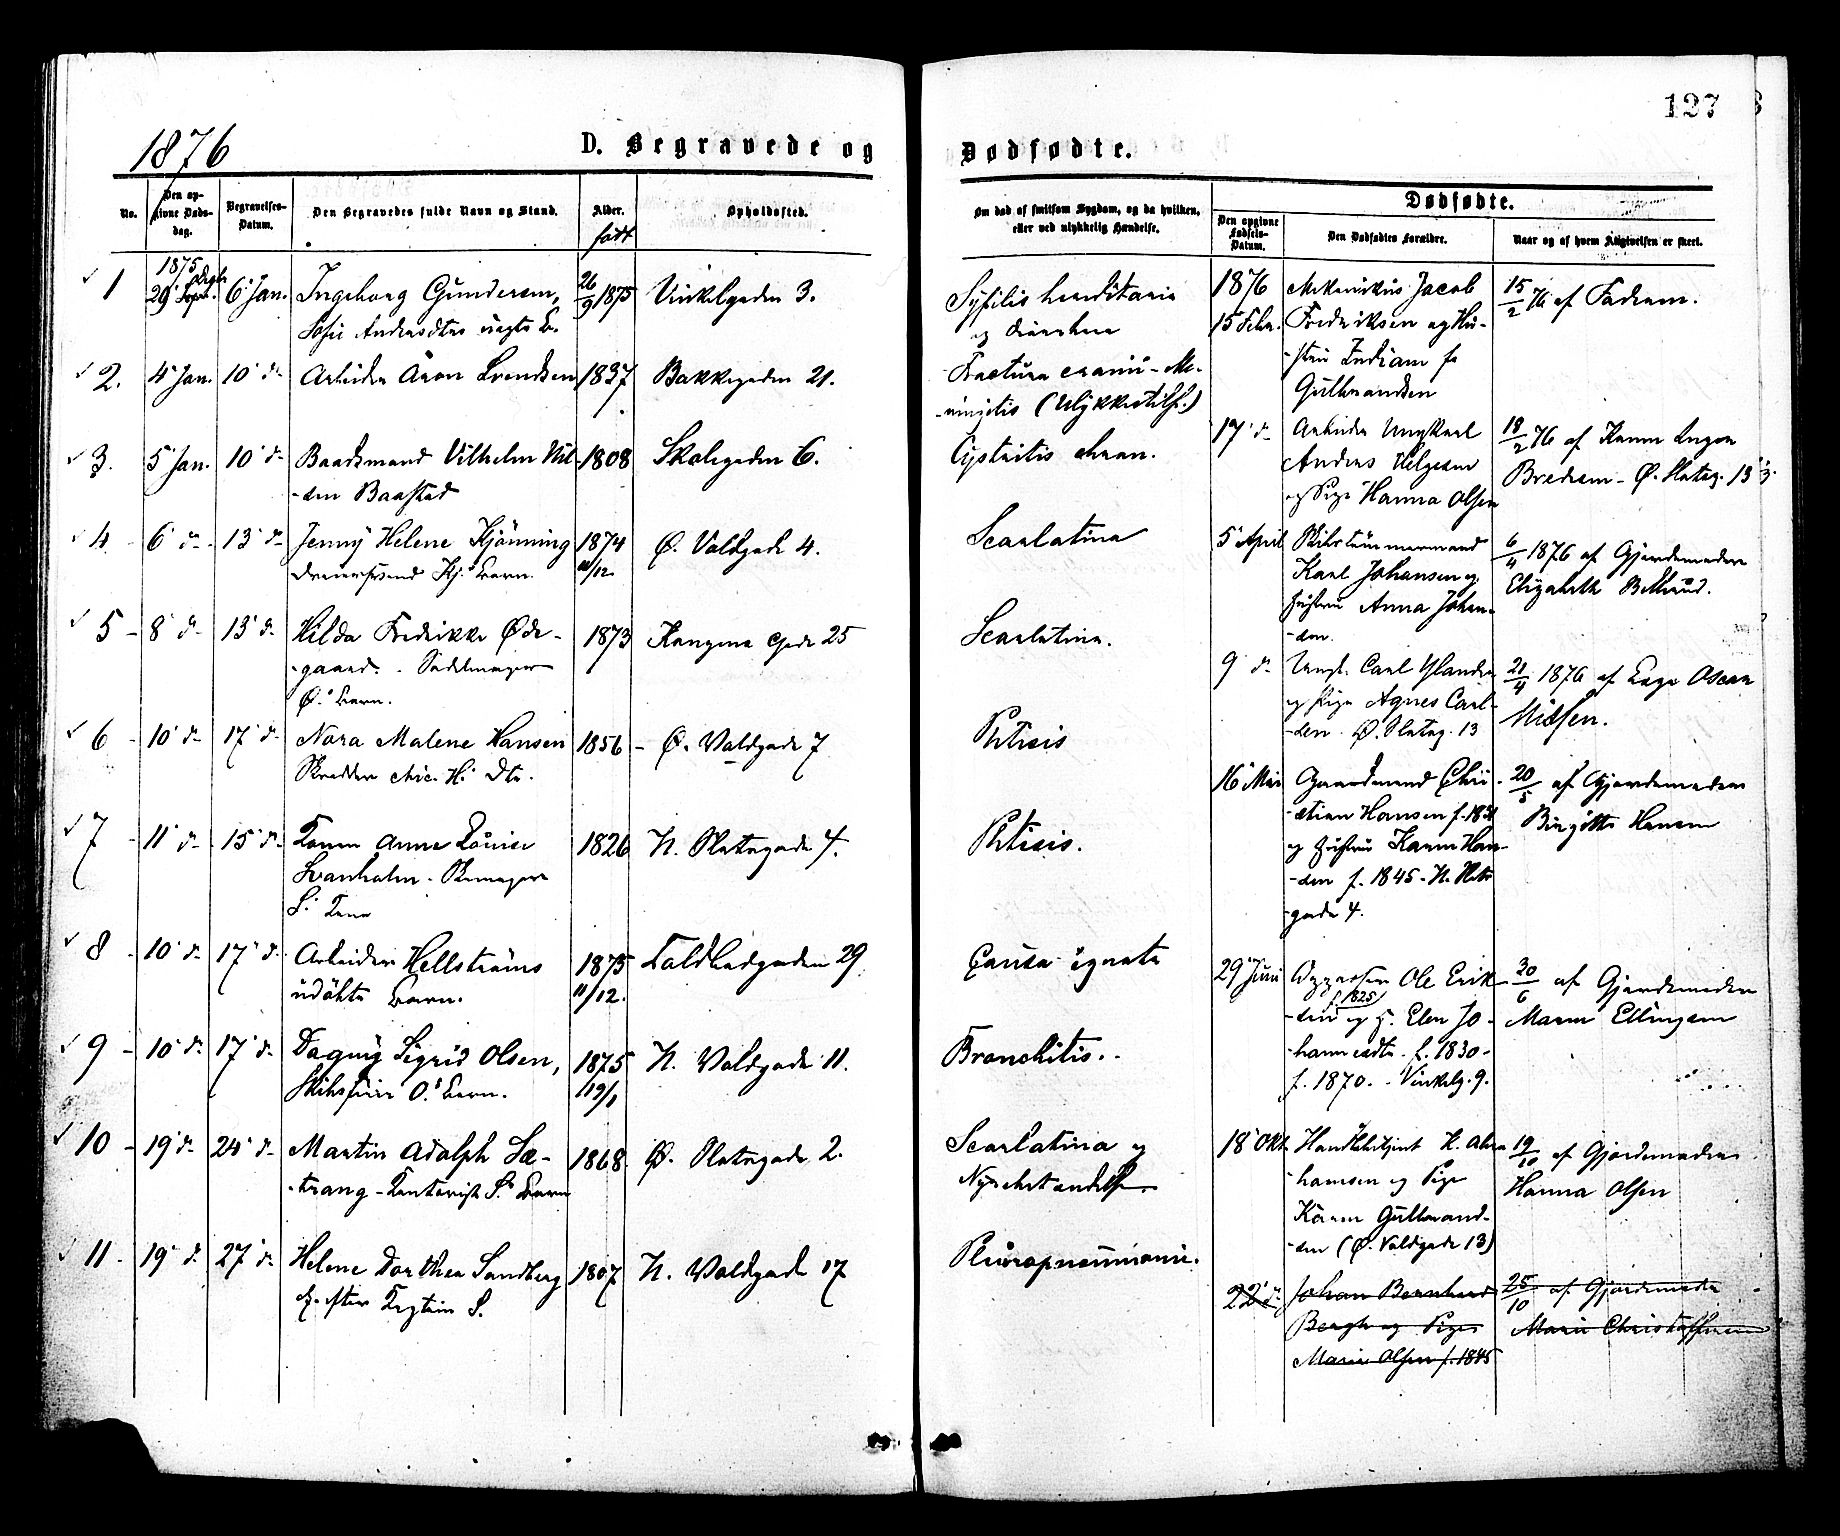 127
1876
D. Begravede og
Dødfødte.
No.
Den op-
givne Døds-
dag.
Begravelses-
Datum.
Den Begravedes fulde Navn og Stand.
Alder.
født
Opholdssted.
Om død af smitsom Sygdom, og da hvilken,
eller ved ulykkelig Hændelse.
Dødfødte.
Den opgivne
Fødsels-
Datum.
Den Dødfødtes Forældre.
Naar og af hvem Angivelsen er skeet.
1 1875 29 6 Jan. Ingeborg Gundersen, 26/9 1875 Vinkelgaden 3. Syfilis hereditaria
Sofie Andersdtrs uægte B. og diarrhea
2. 4 Jan. 10 d– Arbeider Aron Svendsen 1837 Bakkegaden 21. Fractura cranii – Me-
ningitis (Ulykkestilf.)
3. 5 Jan. 10 d– Baadsmand Vilhelm Nil- 1808 Skolegaden 6. Cystitis chron.
-sen Baastad
4 6 d– 13 d– Jenny Helene Hjønning 1874 Ø. Voldgade 4. Scarlatina
Dreiersvend Hj. Barn. /12
5 – 8 d– 13 d– Hilda Fredrikke Øde- 1873 Kongens Gade 25 Scarlatina.
-gaard. Sadelmager
Ø.s Barn.
6 – 10 d– 17 d– Nora Malene Hansen 1856 – Ø. Voldgade 7 Phtisis
Skrædder Chr. H.s Dtr.
7 – 11 d– 15 d– Konen Anne Lovise 1826 N. Slotsgade 4. Phtisis.
Svanholm – Skomager
S.s Kone
8 – 10 d– 17 d– Arbeider Hellstrøms 1875 Toldbodgaden 29 Causa ignota
udøbte Barn. 11/12.
9 – 10 d– 17 d– Dagny Sigrid Olsen, 1875 N. Voldgade 11. Bronchitis.
O.s Barn. 19/1
10 – 19 d– 24 d– Martin Adolph Sæ- 1868 Ø. Slotsgade 2. Scarlatina og
-trang – Kontorist S.s Barn Nyrebetændelse.
11 – 19 d– 27 d– Helene Dorthea Sandberg 1807 N. Voldgade 17 Pleuropneumonie.
E. efter Kaptein S.
1876
15 Febr. Mekanikus Jacob 15/2 76 af Faderen.
Fredriksen og Hu-
-stru Indiane f.
Gulbrandsen
17 d– Arbeider Ungkarl 18/2 76 af Konen Inger
Anders Helgesen Bredesen – Ø. Slotsg. 13
og Pige Hanna Olsen
5 April Skibstømmermand 6/4 1876 af Gjordemoder
Karl Johansen og Elizabeth
Hustru Anna Johan-
-sen.
9 d– Ungk. Carl 21/4 1876 af Oscar
og Pige Agnes Carl- Nilsen.
-sen. Ø. Slotsg. 13
16 Mai Gaardmand Chri- 20/5 af Gjordemoder
-stian Hansen f. Birgitte Hansen
og Hustru Karen Han-
-sen f. 1845 – N. Slots-
gade 4.
29 Juni Oppasser Ole Erik- 30/6 af Gjordemoder
-sen f. 1825 og H. Elen Jo- Maren Ellingsen
hannesdtr. f. 1830 –
f. 1870. – Vinkelg. 9.
18 Okt. Handelsbetjent H. Abra- 19/10 af Gjordemoder
hamsen og Pige Hanna Olsen
Karen Gulbrand-
-sen (Ø. Voldgade 13)
22 d– Johan Bernhard 25/10 af Gjordemoder
Bergh og Pige Marie Christoffersen
Marie Olsen f. 1845